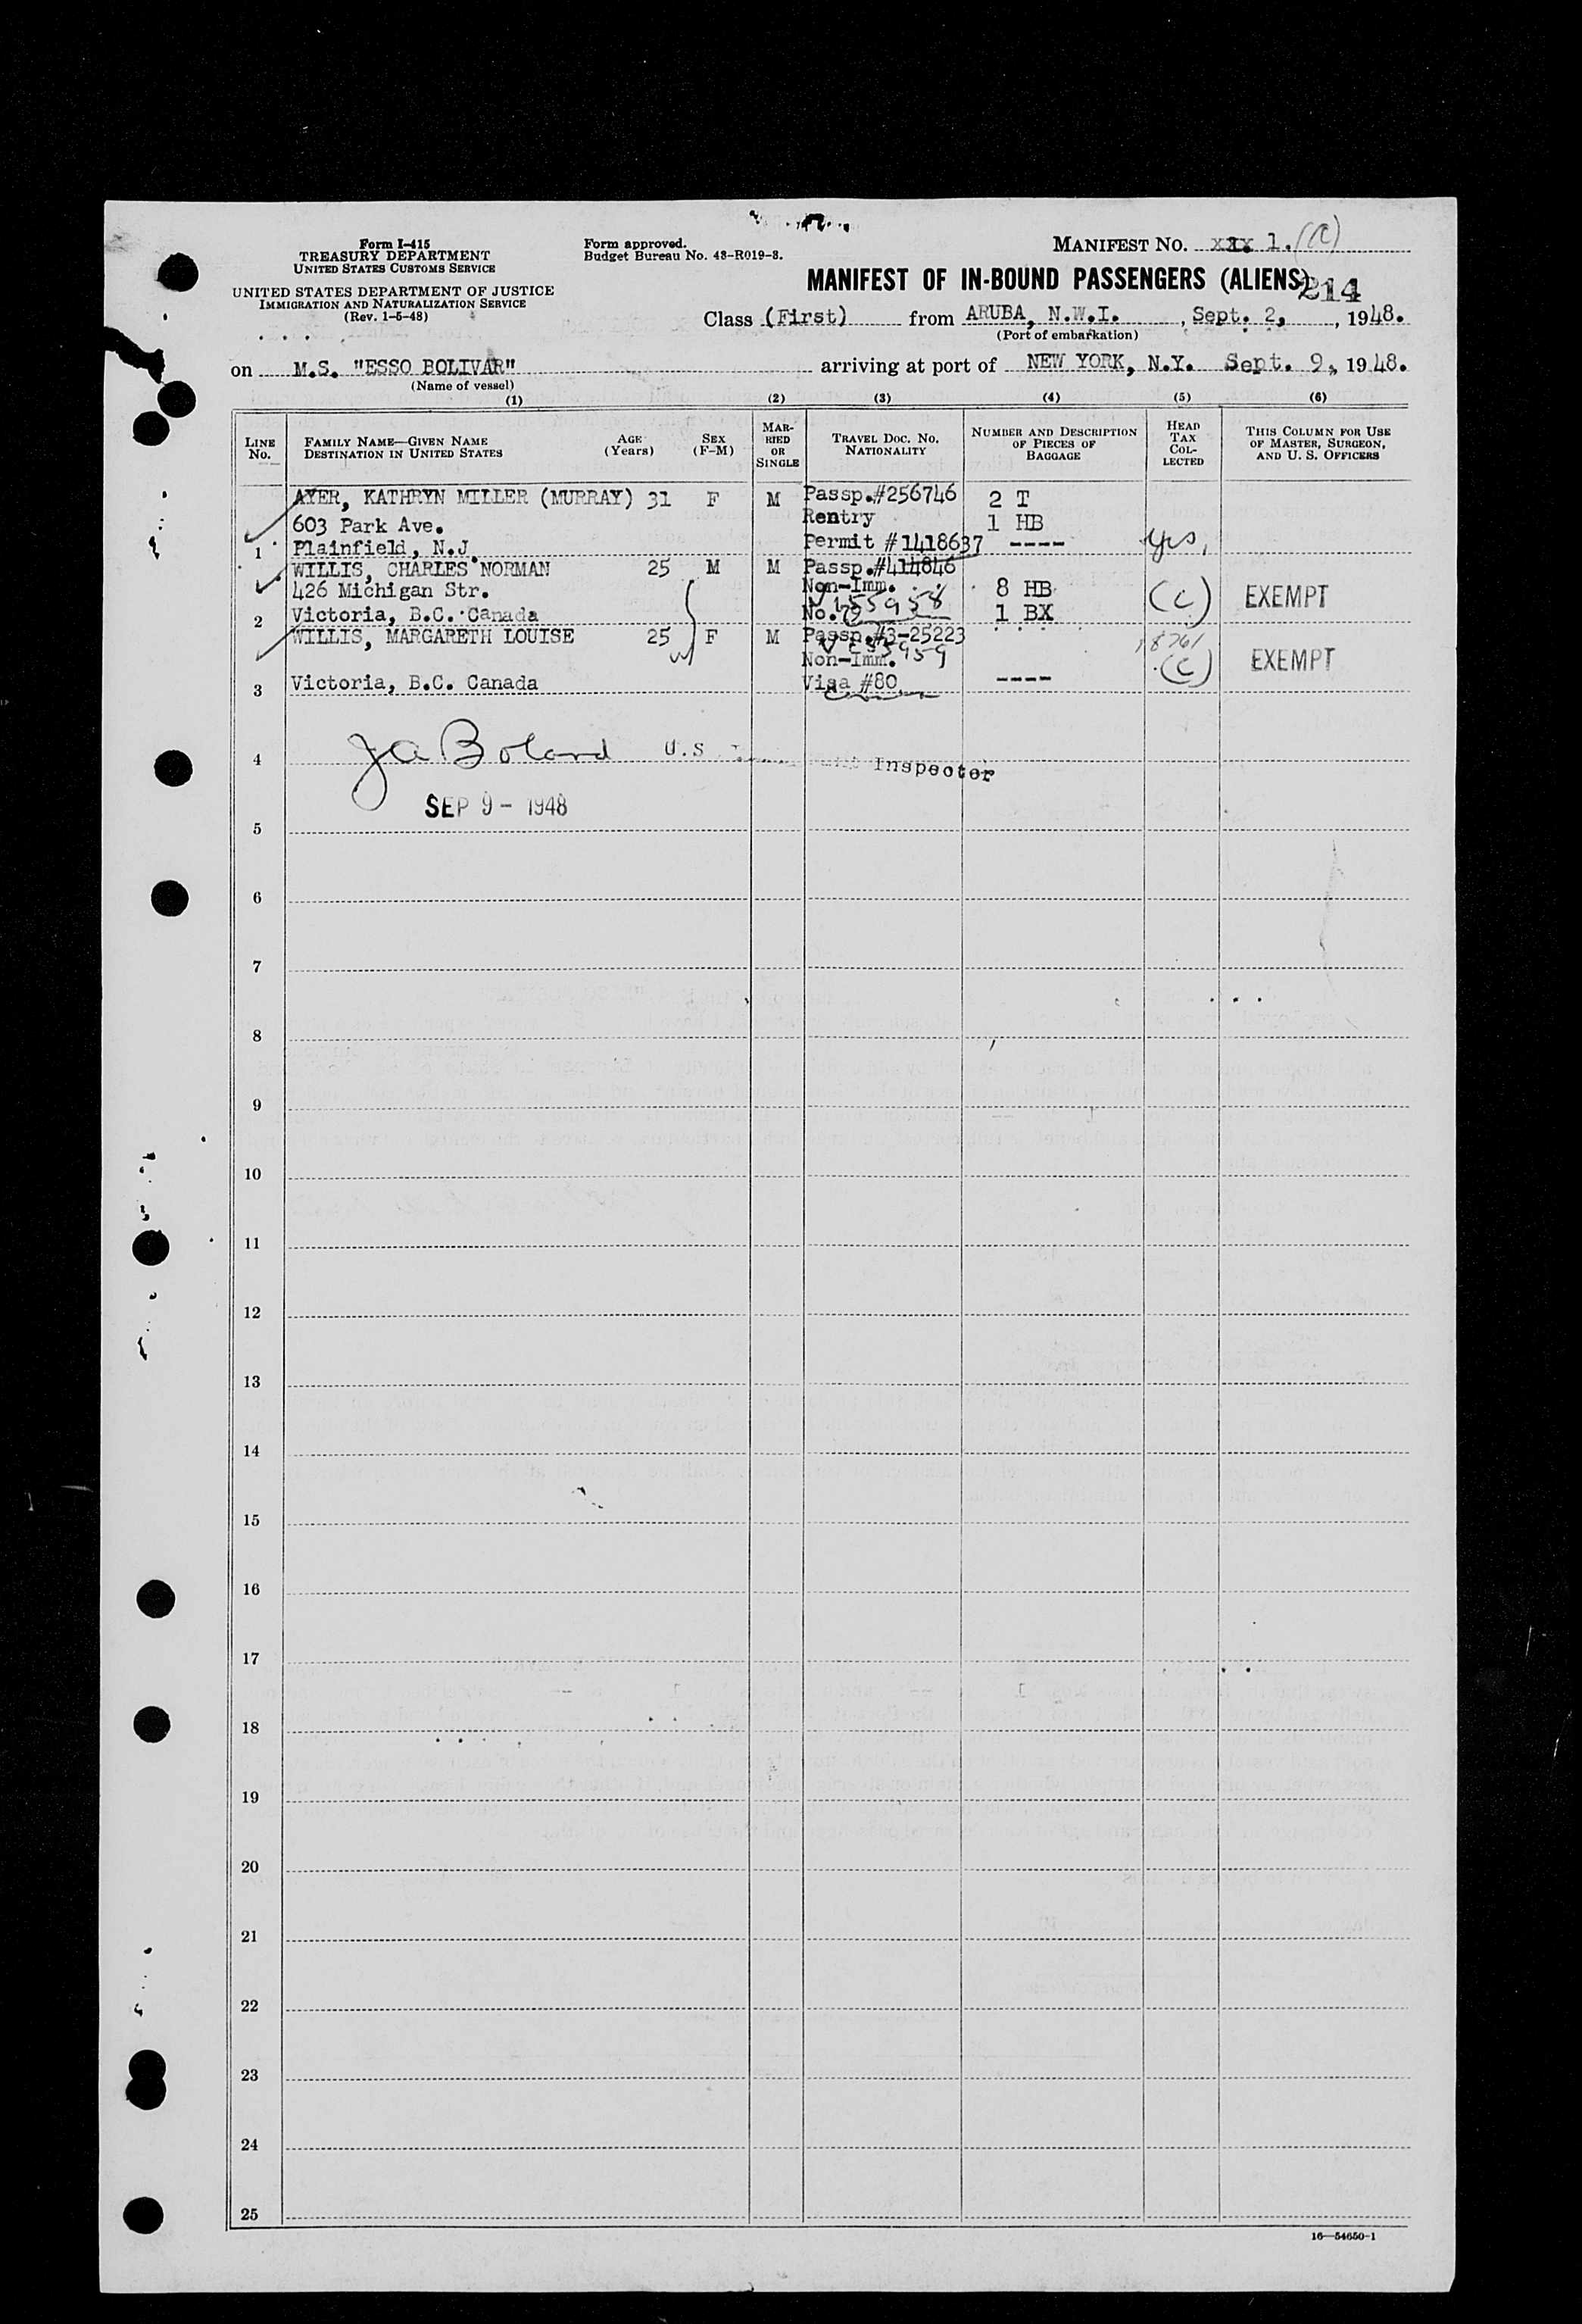 Form I-415
TREASURY DEPARTMENT
UNITED STATES CUSTOMS SERVICE
UNITED STATES DEPARTMENT OF JUSTICE
IMMIGRATION AND NATURALIZATION SERVICE
(Rev. 1-5-48)
Form approved.
Budget Bureau No. 43-R019-3.
MANIFEST NO. 1.
MANIFEST OF IN-BOUND PASSENGERS (ALIENS)
214
Class (First) from ARUBA, N.W.I., Sept. 2, 1948.
(Port of embarkation)
on M.S. "ESSO BOLIVAR" arriving at port of NEW YORK, N.Y. Sept. 9, 1948.
(Name of vessel)
(1) (2) (3) (4) (5) (6)
LINE NO. FAMILY NAME—GIVEN NAME DESTINATION IN UNITED STATES AGE (Years) SEX (F-M) MARRIED OR SINGLE TRAVEL DOC. NO. NATIONALITY NUMBER AND DESCRIPTION OF PIECES OF BAGGAGE HEAD TAX COLLECTED THIS COLUMN FOR USE OF MASTER, SURGEON, AND U. S. OFFICERS
AYER, KATHRYN MILLER (MURRAY) 31 F M Passp.#256746 2 T
603 Park Ave. Rentry 1 HB
1 Plainfield, N.J. Permit #1418637 ---- yes,
WILLIS, CHARLES NORMAN 25 M M Passp.#414846
426 Michigan Str. Non-Imm. 8 HB (C) EXEMPT
2 Victoria, B.C. Canada No. V155958 1 BX
WILLIS, MARGARETH LOUISE 25 F M Passp.#3-25223
Non-Imm. (C) EXEMPT
3 Victoria, B.C. Canada Visa #80 ----
4 J A Boland U.S. Inspector
SEP 9 - 1948
5
6
7
8
9
10
11
12
13
14
15
16
17
18
19
20
21
22
23
24
25
16—54650-1